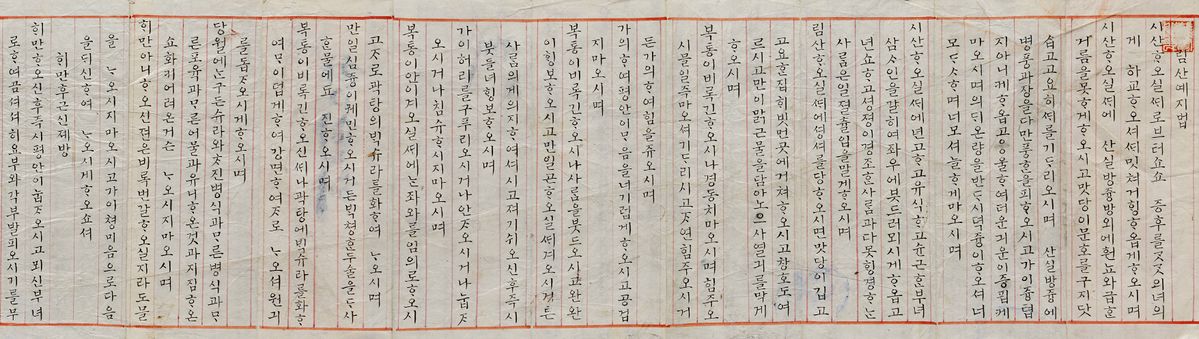 림산예지법
시산ᄒᆞ오실ᄯᅢ로브터쇼쇼 증후를ᄌᆞᄌᆞ의녀의
게 하교ᄒᆞ오셔 밋쳐거ᄒᆡᆼᄒᆞᄋᆞᆸ게ᄒᆞ오시며
시산ᄒᆞ오실ᄯᅢ에 산실방즁방외에훤뇨와급ᄒᆞᆫ
거름을못ᄒᆞ게ᄒᆞ오시고맛당이문호를구지닷
ᄉᆞᆸ고고요히ᄯᅢ를기ᄃᆞ리오시며 산실방즁에
병풍과쟝을다만풍한을피ᄒᆞ오시고가이즁텹
지아니케ᄒᆞᄋᆞᆸ고응울ᄒᆞ여더운긔운이증 게
마오시며의ᄃᆡ온량을반ᄃᆞ시덕즁이ᄒᆞ오셔너
모ᄃᆞᄉᆞᄒᆞ며너모셔늘ᄒᆞ게마오시며
시산ᄒᆞ오실ᄯᅢ에년노ᄒᆞ고유식ᄒᆞ고슌근ᄒᆞᆫ부녀
삼ᄉᆞ인을갈ᄒᆡ여좌우에붓드러뫼시게ᄒᆞᄋᆞᆸ고
년쇼ᄒᆞ고셩졍이경조ᄒᆞᆫ사ᄅᆞᆷ과다못ᄒᆡᆼ경ᄒᆞᄂᆞᆫ
사ᄅᆞᆷ은일졀츌입을말게ᄒᆞ오시며
림산ᄒᆞ오실ᄯᅢ에셩셔를당ᄒᆞ오시면맛당이깁고
고요ᄒᆞᆫ집히빗 먼곳에거쳐ᄒᆞ오시고창호도여
르시고만이맑근물을담아노으사열긔를막게
ᄒᆞ오시며
복통이비록긴ᄒᆞ오시나경동치마오시며힘주오
시믈일즉마오셔기ᄃᆞ리시고ᄌᆞ연힘주오시거
든가의ᄒᆞ여힘을쥬오시며
가의ᄒᆞ여평안이ᄆᆞ음을너그럽게ᄒᆞ오시고공겁
지마오시며
복통이비록긴ᄒᆞ오시나사ᄅᆞᆷ을붓드오시고완완
이ᄒᆡᆼ보ᄒᆞ오시고만일곤ᄒᆞ오실ᄯᅢ거오시거든
사ᄅᆞᆷ의게의지ᄒᆞ여셔시고져기쉬오신후즉시
붓들녀ᄒᆡᆼ보ᄒᆞ오시며
가이허리를구푸리오시거나안ᄌᆞ오시거나눕ᄌᆞ
오시거나침슈ᄒᆞ시지마오시며
복통이안이겨오실ᄯᅢ에ᄂᆞᆫ좌와를임의로ᄒᆞ오시
고ᄌᆞ로곽탕의ᄇᆡᆨ슈라를화ᄒᆞ여 오시며
만일심즁이궤민ᄒᆞ오시거든ᄇᆡᆨ쳥ᄒᆞᆫ두술을ᄃᆞ사
ᄒᆞᆫ물에 진ᄒᆞ오시며
복통이비록긴ᄒᆞ오신ᄯᅢ나곽탕에ᄇᆡᆨ슈라를화ᄒᆞ
여ᄆᆡ이덥게ᄒᆞ여강면ᄒᆞ여ᄌᆞ로 오셔원긔
를돕ᄌᆞ오시게ᄒᆞ오시며
당월에ᄂᆞᆫ구든슈라와ᄎᆞ진병식과마른병식과
른포육과마른어물과유나ᄒᆞ온것과지짐ᄒᆞ온
쇼화키어려온거ᄂᆞᆫ 오시지마오시며
ᄒᆡ만아니ᄒᆞ오션젼은비록번갈ᄒᆞ오실지라도물
을 오시지마오시고가이쳥미음으로다음
을ᄃᆡ신ᄒᆞ여 오시게ᄒᆞ오쇼셔
ᄒᆡ만후근신졔방
ᄒᆡ만ᄒᆞ오신후즉시평안이눕ᄌᆞ오시고뫼신부녀
로ᄒᆞ여곰셔셔히요부와각부발ᄭᅵ오시기를무